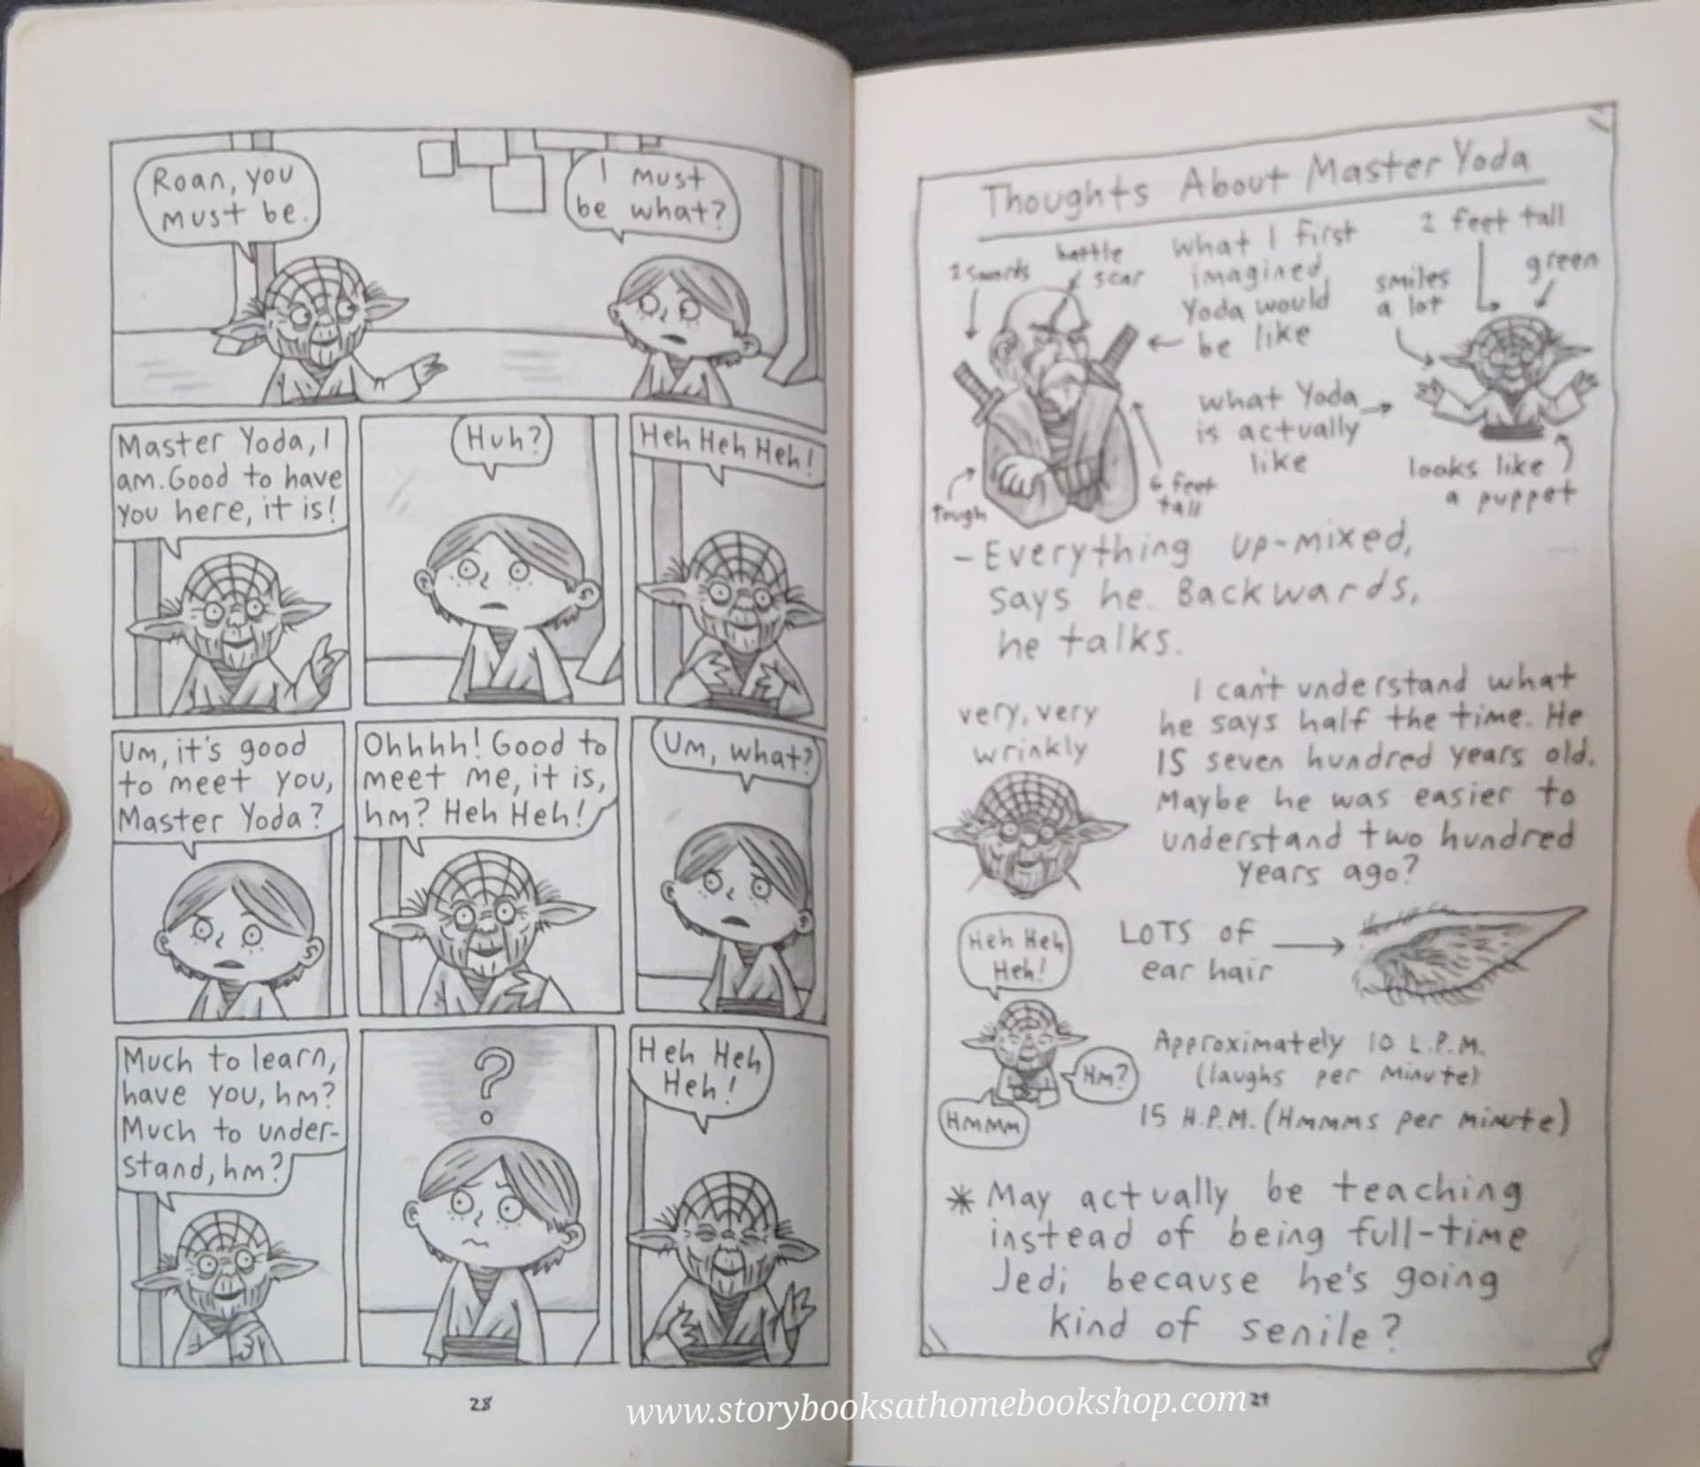 Roan, you
must be.
I must
be what?
Master Yoda, I
am. Good to have
you here, it is!
Huh?
Heh Heh Heh!
Um, it's good
to meet you,
Master Yoda?
Ohhhh! Good to
meet me, it is,
hm? Heh Heh!
Um, what?
Much to learn,
have you, hm?
Much to under-
stand, hm?
?
Heh Heh
Heh!
28
Thoughts About Master Yoda
2 swords
battle
scar
what I first
imagined
Yoda would
be like
tough
6 feet
tall
2 feet tall
smiles
a lot
green
what Yoda
is actually
like
looks like
a puppet
- Everything up-mixed,
says he. Backwards,
he talks.
very, very
wrinkly
I can't understand what
he says half the time. He
IS seven hundred years old.
Maybe he was easier to
understand two hundred
years ago?
Heh Heh
Heh!
LOTS of
ear hair
Hm?
Hmmm
Approximately 10 L.P.M.
(laughs per minute)
15 H.P.M. (Hmmms per minute)
* May actually be teaching
instead of being full-time
Jedi because he's going
kind of senile?
29
www.storybooksathomebookshop.com